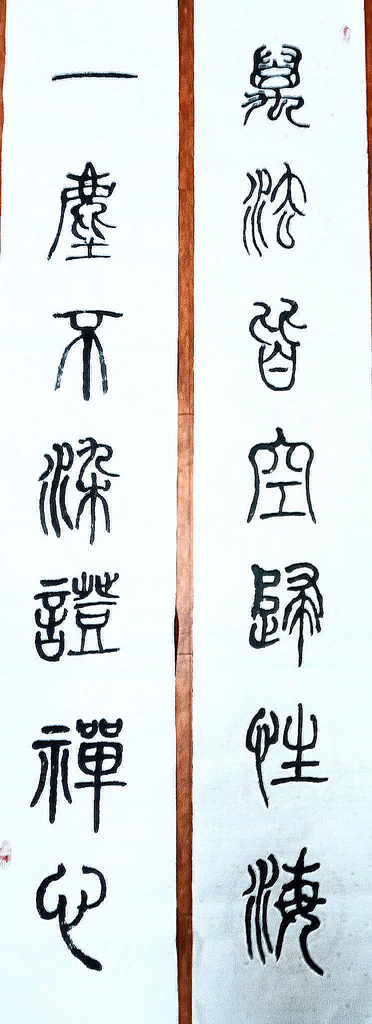 萬法皆空歸性海
一塵不染證禪心